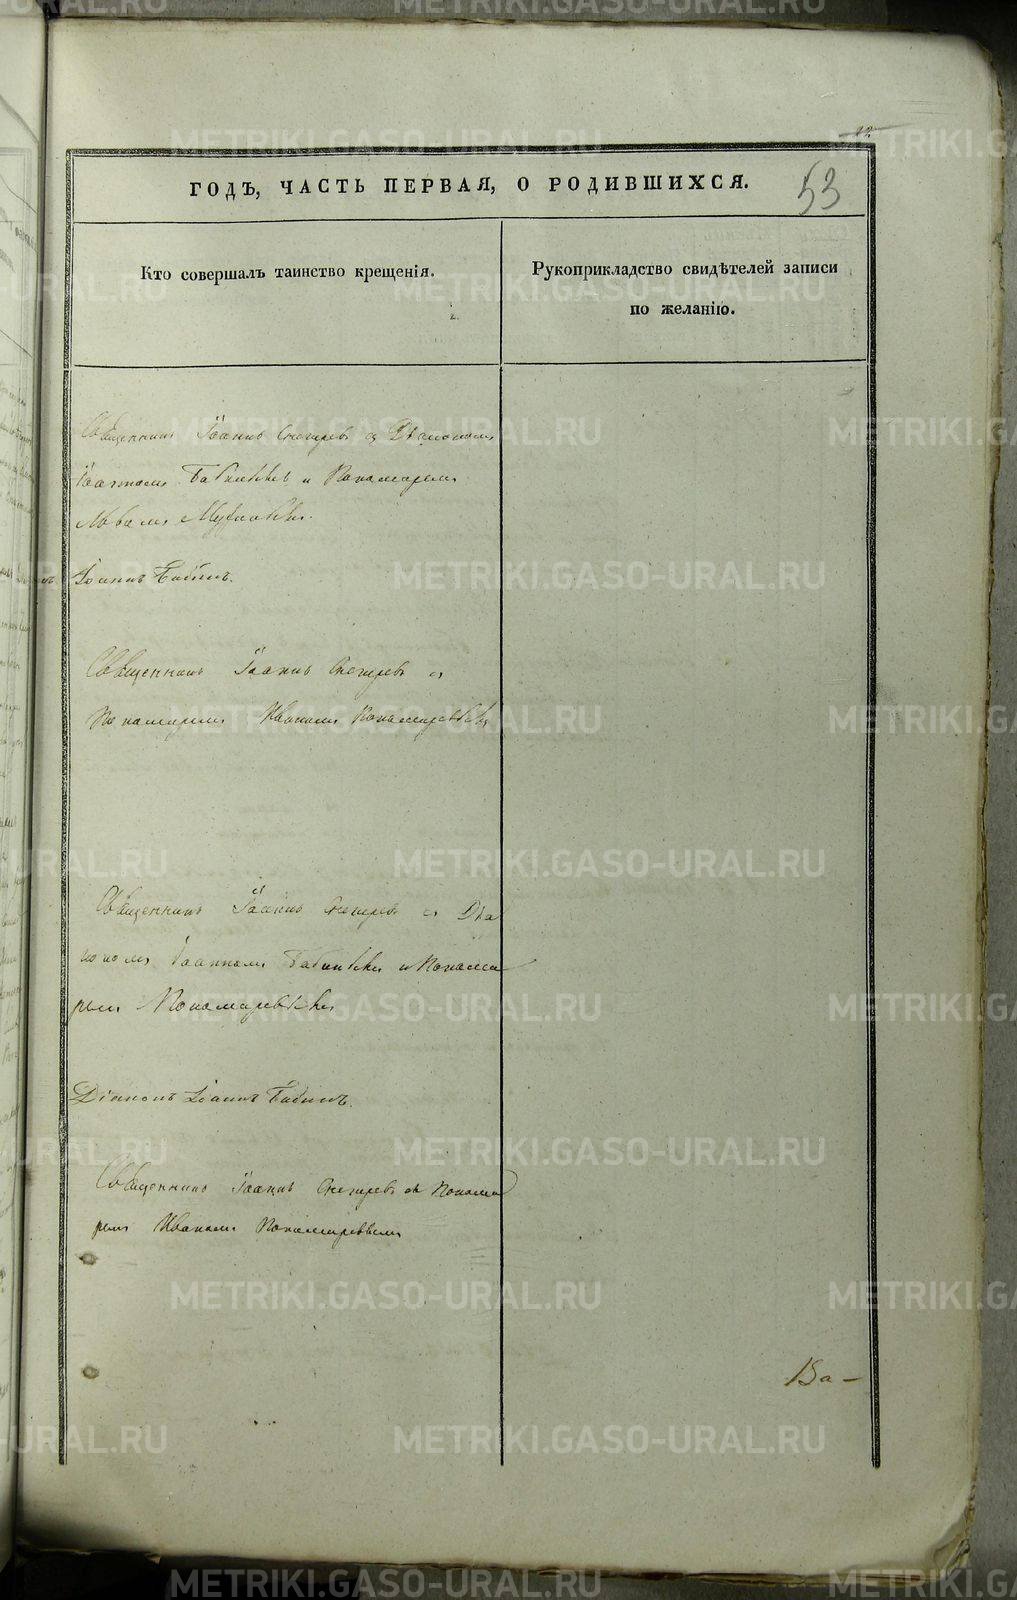 53
ГОДЪ, ЧАСТЬ ПЕРВАЯ, О РОДИВШИХСЯ.
Кто совершалъ таинство крещенія.
Рукоприкладство свидѣтелей записи
по желанію.
Священникъ Іоаннъ Снегирев съ Діакономъ
Іоанномъ и Пономарем
Іоаннъ Бабинъ.
Священникъ Іоаннъ Снегирев съ
Пономарем Иваном Пономаревым
Священникъ Іоаннъ Снегирев с Діа
коном Іоанном и Понома
рем Пономаревым
Діаконъ Іоаннъ Бабинъ.
Священникъ Іоаннъ Снегирев съ Понома
рем Иваном Пономаревым
Ва-
METRIKI.GASO-URAL.RU